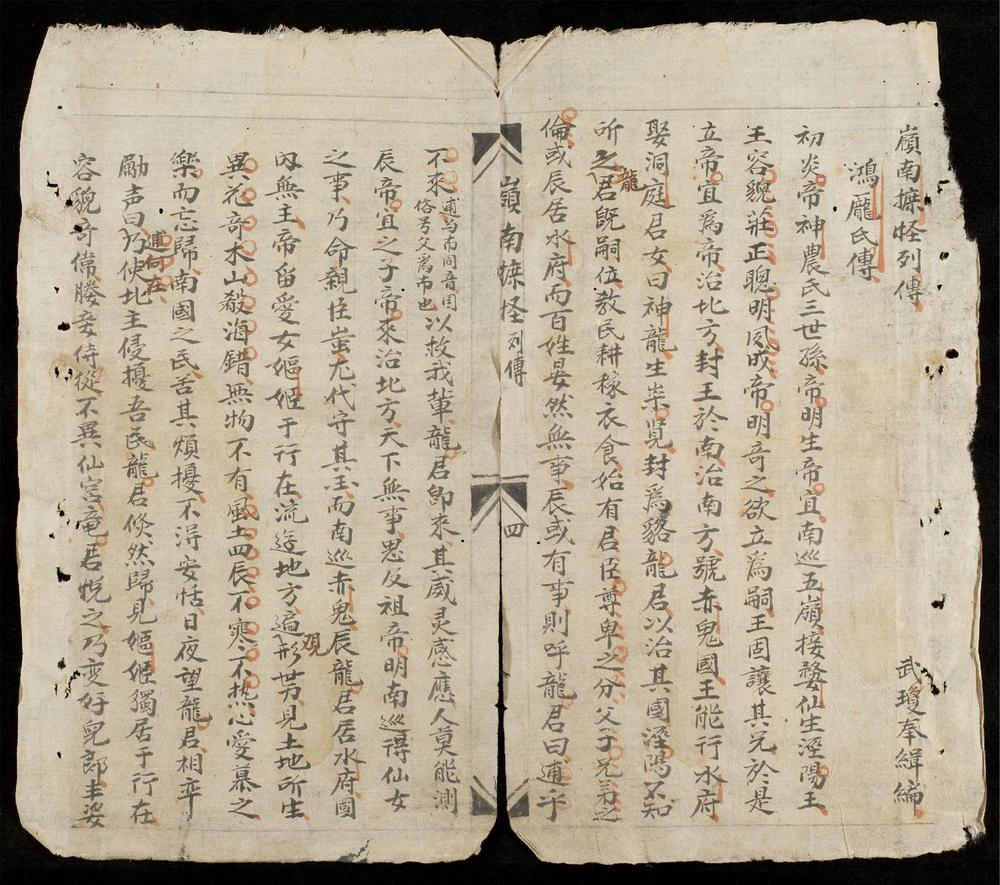 嶺南摭怪列傳
鴻龐氏傳
武瓊奉緝編
初炎帝神農氏三世孫帝明生帝宜南巡五嶺接婺仙生涇陽王
王容貌莊正聰明夙成帝明奇之欲立爲嗣王固讓其兄於是
立帝宜爲帝治北方封王於南治南方號赤鬼國王能行水府
娶洞庭君女曰神龍生崇覽封爲貉龍君以治其國涇陽不知
所之龍君旣嗣位教民耕稼衣食始有君臣尊卑之分父子兄弟之
倫或辰居水府而百姓晏然無事辰或有事則呼龍君曰逋乎
嶺南摭怪列傳 四
不來逋与布同音国俗号父爲布也以救我軰龍君卽來其威灵感應人莫能測
辰帝宜之子帝來治北方天下無事思反祖帝明南巡得仙女
之事乃命親臣蚩尤代守其玉而南巡赤鬼辰龍君居水府國
內無王帝留愛女嫗姬于行在流迄地方遍形势觀見土地所生
異花奇木山殽海錯無物不有風土四辰不寒不热心愛慕之
樂而忘歸南國之民苦其煩擾不淂安恬日夜望龍君相率
勵声曰逋何在乃使北主侵擾吾民龍君倏然歸見嫗姬獨居于行在
容貌奇偉媵妾侍從不異仙宮竜君悅之乃变好皃郎主姿